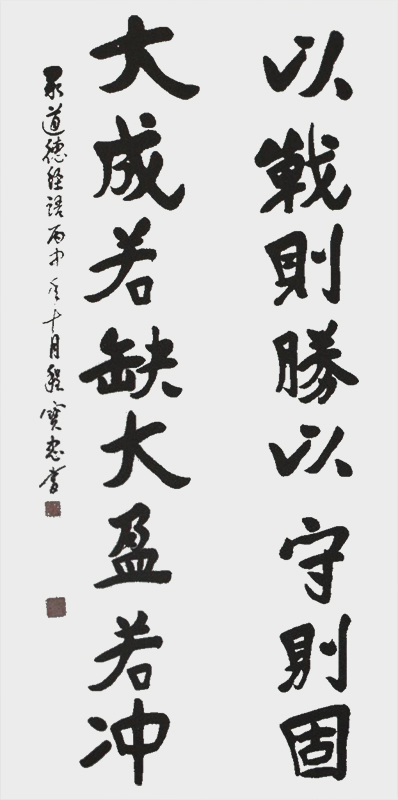 以戰則勝以守則固
大成若缺大盈若冲
录道德经语丙申年十月程寶忠書